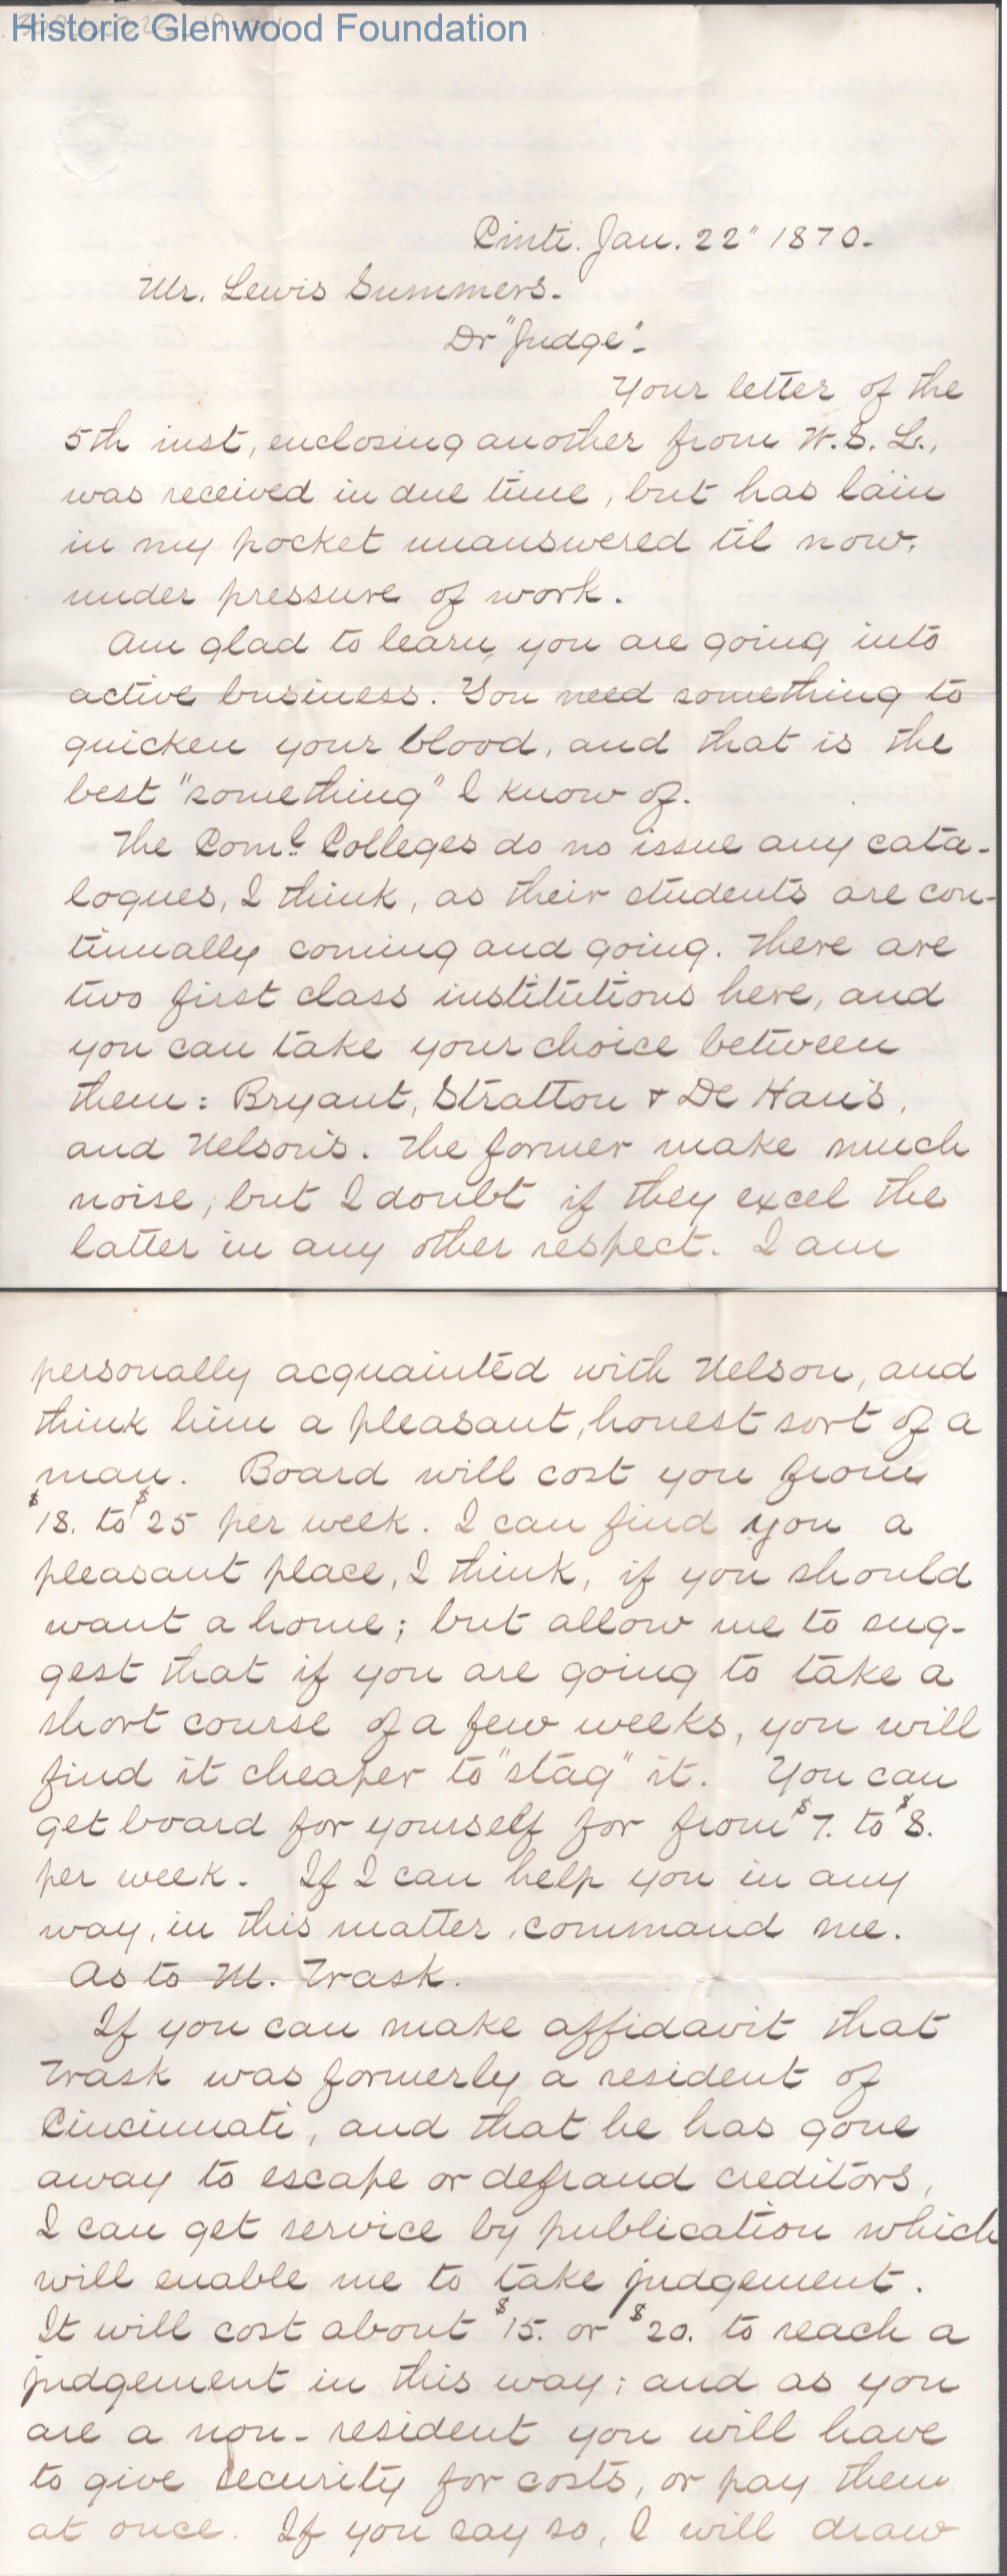 Historic Glenwood Foundation
Cinti. Jan. 22" 1870.
Mr. Lewis Summers.
Dr "Judge".
Your letter of the
5th inst, enclosing another from W. S. L.,
was received in due time, but has lain
in my pocket unanswered til now,
under pressure of work.
Am glad to learn you are going into
active business. You need something to
quicken your blood, and that is the
best "something" I know of.
The Coml. Colleges do no issue any cata-
logues, I think, as their students are con-
tinually coming and going. There are
two first class institutions here, and
you can take your choice between
them: Bryant, Stratton & De Han's,
and Nelson's. The former make much
noise, but I doubt if they excel the
latter in any other respect. I am
personally acquainted with Nelson, and
think him a pleasant, honest sort of a
man. Board will cost you from
$18. to $25 per week. I can find you a
pleasant place, I think, if you should
want a home; but allow me to sug-
gest that if you are going to take a
short course of a few weeks, you will
find it cheaper to "stag" it. You can
get board for yourself for from $7. to $8.
per week. If I can help you in any
way, in this matter, command me.
As to M. Trask.
If you can make affidavit that
Trask was formerly a resident of
Cincinnati, and that he has gone
away to escape or defraud creditors,
I can get service by publication which
will enable me to take judgement.
It will cost about $15. or $20. to reach a
judgement in this way; and as you
are a non-resident you will have
to give security for costs, or pay them
at once. If you say so, I will draw